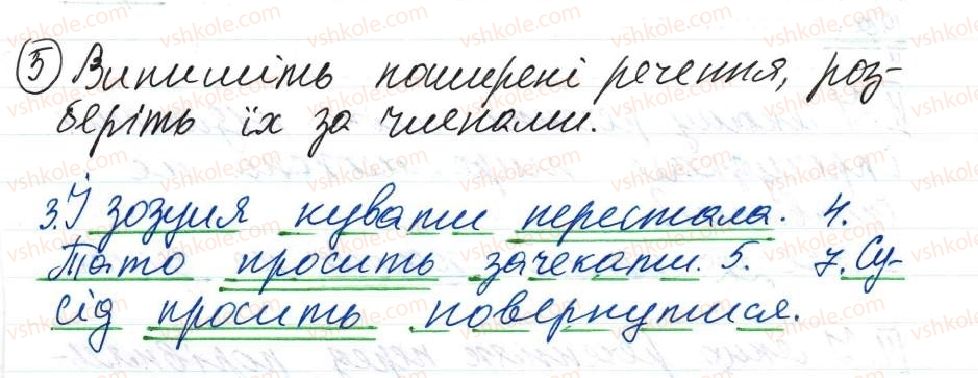 5 Випишіть поширені речення, роз-
беріть їх за членами.
3. І зозуля кувати перестала. 4.
Тато просить зачекати. 5. 7. Су-
сід просить повернутися.